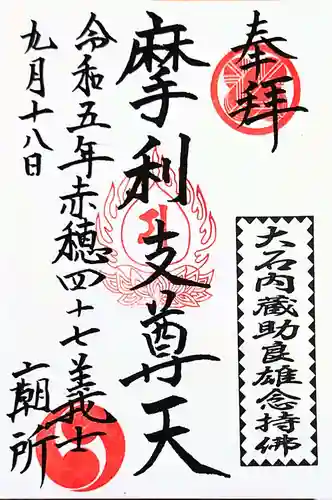 奉拝
大石内蔵助良雄念持佛
摩利支尊天
令和五年赤穂四十七義士
廟所
九月十八日